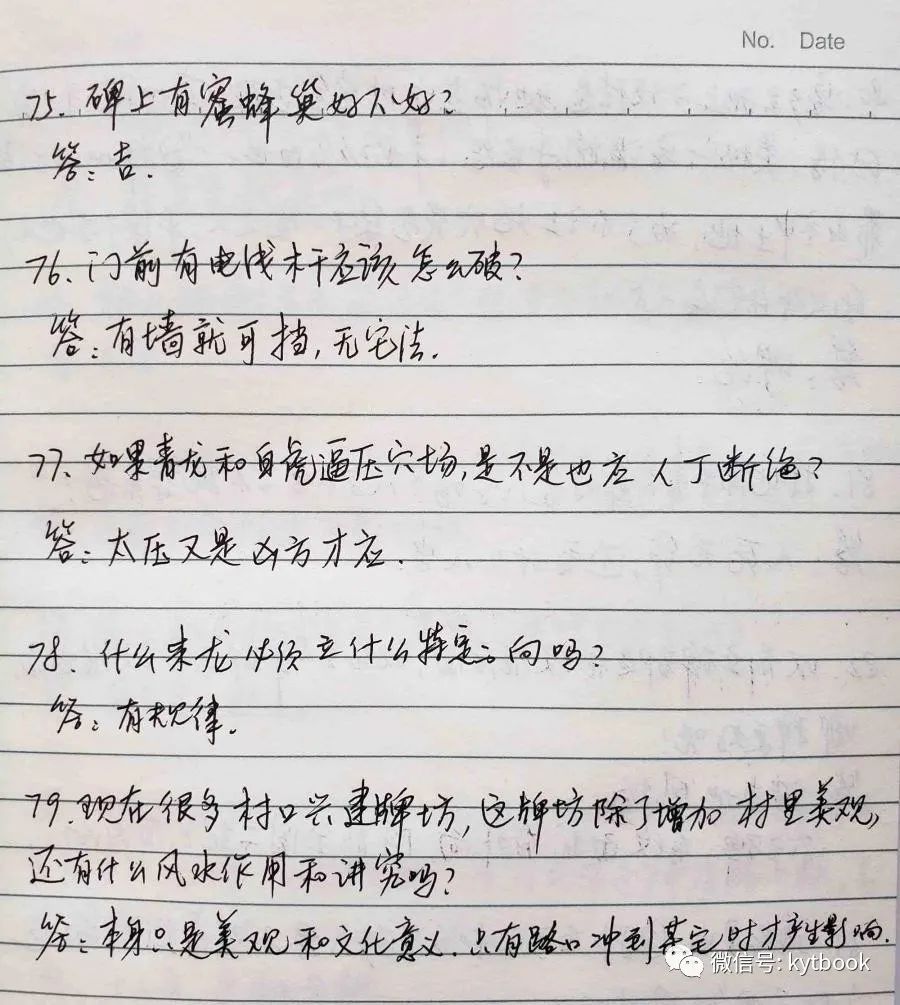 No. Date
75. 碑上有蜜蜂巢好不好?
答:吉.
76、门前有电线杆应该怎么破?
答:有墙就可挡,无它法.
77、如果青龙和白虎逼压穴场,是不是也应人丁断绝?
答:太压又是凶方才应.
78、什么来龙必须立什么特定向吗?
答:有规律.
79.现在很多村口兴建牌坊,这牌坊除了增加村里美观,
还有什么风水作用和讲究吗?
答:本身只是美观和文化意义.只有路口冲到某宅时才产生影响.
微信号: kytbook